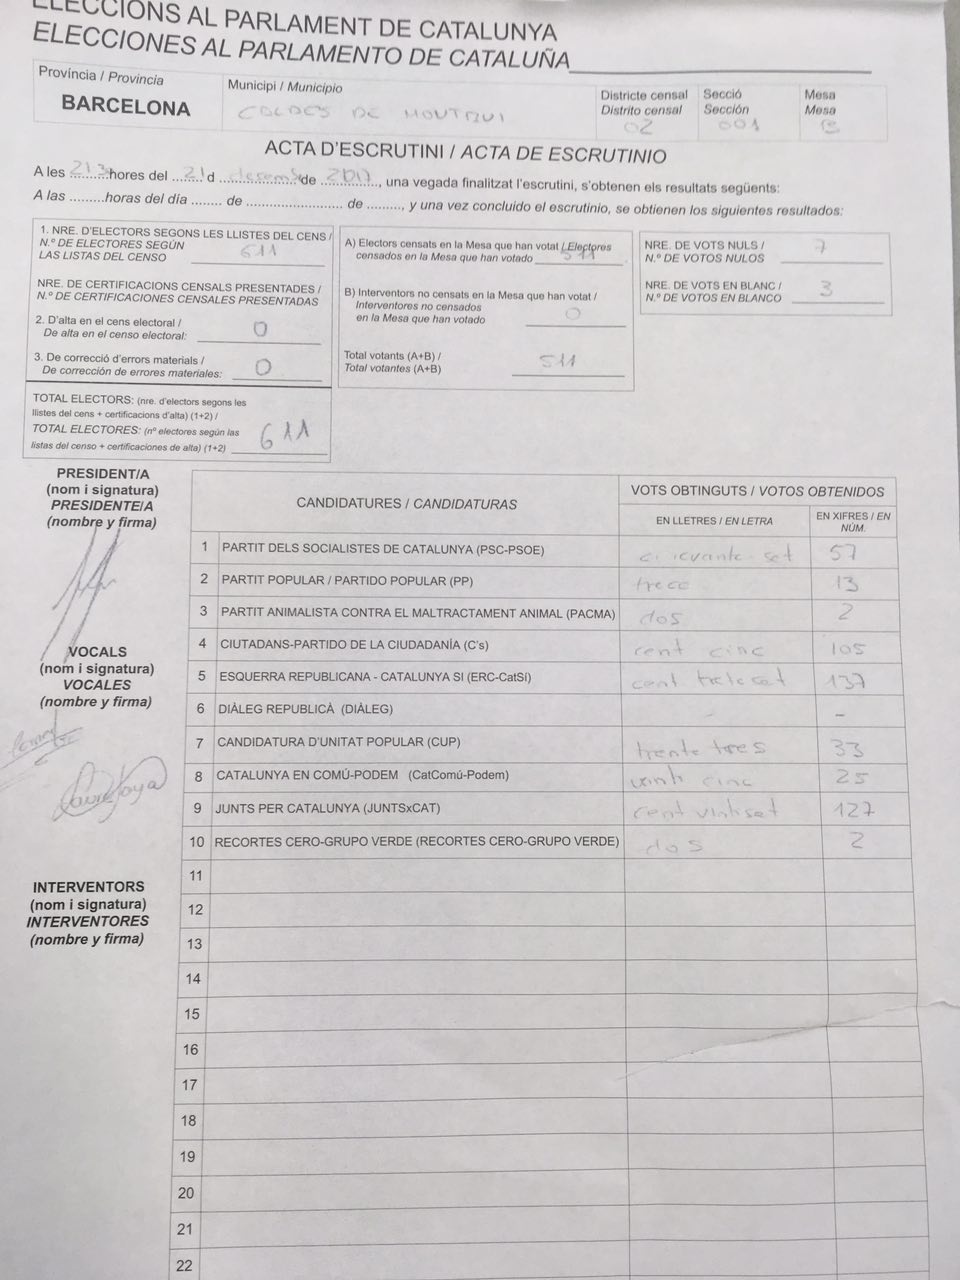 ELECCIONS AL PARLAMENT DE CATALUNYA
ELECCIONES AL PARLAMENTO DE CATALUÑA
Província / Provincia
BARCELONA
Municipi / Municipio
CALDES DE MONTBUI
Districte censal
Distrito censal
02
Secció
Sección
001
Mesa
Mesa
B
ACTA D'ESCRUTINI / ACTA DE ESCRUTINIO
A les 21:3 hores del 21 d desembre de 2017, una vegada finalitzat l'escrutini, s'obtenen els resultats següents:
A las .........horas del día ........ de ........................ de ........., y una vez concluido el escrutinio, se obtienen los siguientes resultados:
1. NRE. D'ELECTORS SEGONS LES LLISTES DEL CENS /
N.º DE ELECTORES SEGÚN
LAS LISTAS DEL CENSO 611
NRE. DE CERTIFICACIONS CENSALS PRESENTADES /
N.º DE CERTIFICACIONES CENSALES PRESENTADAS
2. D'alta en el cens electoral /
De alta en el censo electoral: 0
3. De correcció d'errors materials /
De corrección de errores materiales: 0
TOTAL ELECTORS: (nre. d'electors segons les
llistes del cens + certificacions d'alta) (1+2) /
TOTAL ELECTORES: (nº electores según las
listas del censo + certificaciones de alta) (1+2) 611
A) Electors censats en la Mesa que han votat / Electores
censados en la Mesa que han votado 511
B) Interventors no censats en la Mesa que han votat /
Interventores no censados
en la Mesa que han votado 0
Total votants (A+B) /
Total votantes (A+B) 511
NRE. DE VOTS NULS /
N.º DE VOTOS NULOS 7
NRE. DE VOTS EN BLANC /
N.º DE VOTOS EN BLANCO 3
PRESIDENT/A
(nom i signatura)
PRESIDENTE/A
(nombre y firma)
VOCALS
(nom i signatura)
VOCALES
(nombre y firma)
INTERVENTORS
(nom i signatura)
INTERVENTORES
(nombre y firma)
CANDIDATURES / CANDIDATURAS
VOTS OBTINGUTS / VOTOS OBTENIDOS
EN LLETRES / EN LETRA
EN XIFRES / EN NÚM.
1 PARTIT DELS SOCIALISTES DE CATALUNYA (PSC-PSOE) cinquanta-set 57
2 PARTIT POPULAR / PARTIDO POPULAR (PP) 13
3 PARTIT ANIMALISTA CONTRA EL MALTRACTAMENT ANIMAL (PACMA) dos 2
4 CIUTADANS-PARTIDO DE LA CIUDADANÍA (C's) cent cinc 105
5 ESQUERRA REPUBLICANA - CATALUNYA SI (ERC-CatSí) cent 137
6 DIÀLEG REPUBLICÀ (DIÀLEG) - -
7 CANDIDATURA D'UNITAT POPULAR (CUP) trente tres 33
8 CATALUNYA EN COMÚ-PODEM (CatComú-Podem) vinti cinc 25
9 JUNTS PER CATALUNYA (JUNTSxCAT) cent vintiset 127
10 RECORTES CERO-GRUPO VERDE (RECORTES CERO-GRUPO VERDE) dos 2
11
12
13
14
15
16
17
18
19
20
21
22